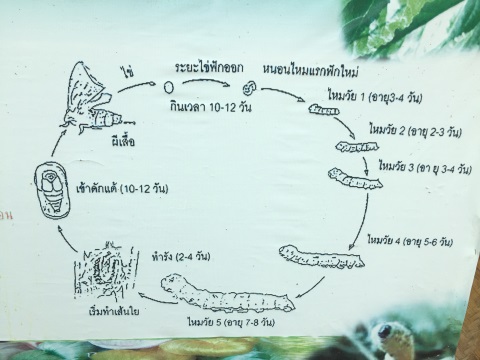 ไข่
ระยะไข่ฟักออก
หนอนไหมแรกฟักใหม่
กินเวลา 10-12 วัน
ไหมวัย 1 (อายุ3-4 วัน)
ไหมวัย 2 (อายุ 2-3 วัน)
ไหมวัย 3 (อายุ 3-4 วัน)
ไหมวัย 4 (อายุ 5-6 วัน)
ไหมวัย 5 (อายุ 7-8 วัน)
ทำรัง (2-4 วัน)
เริ่มทำเส้นใย
เข้าดักแด้ (10-12 วัน)
ผีเสื้อ